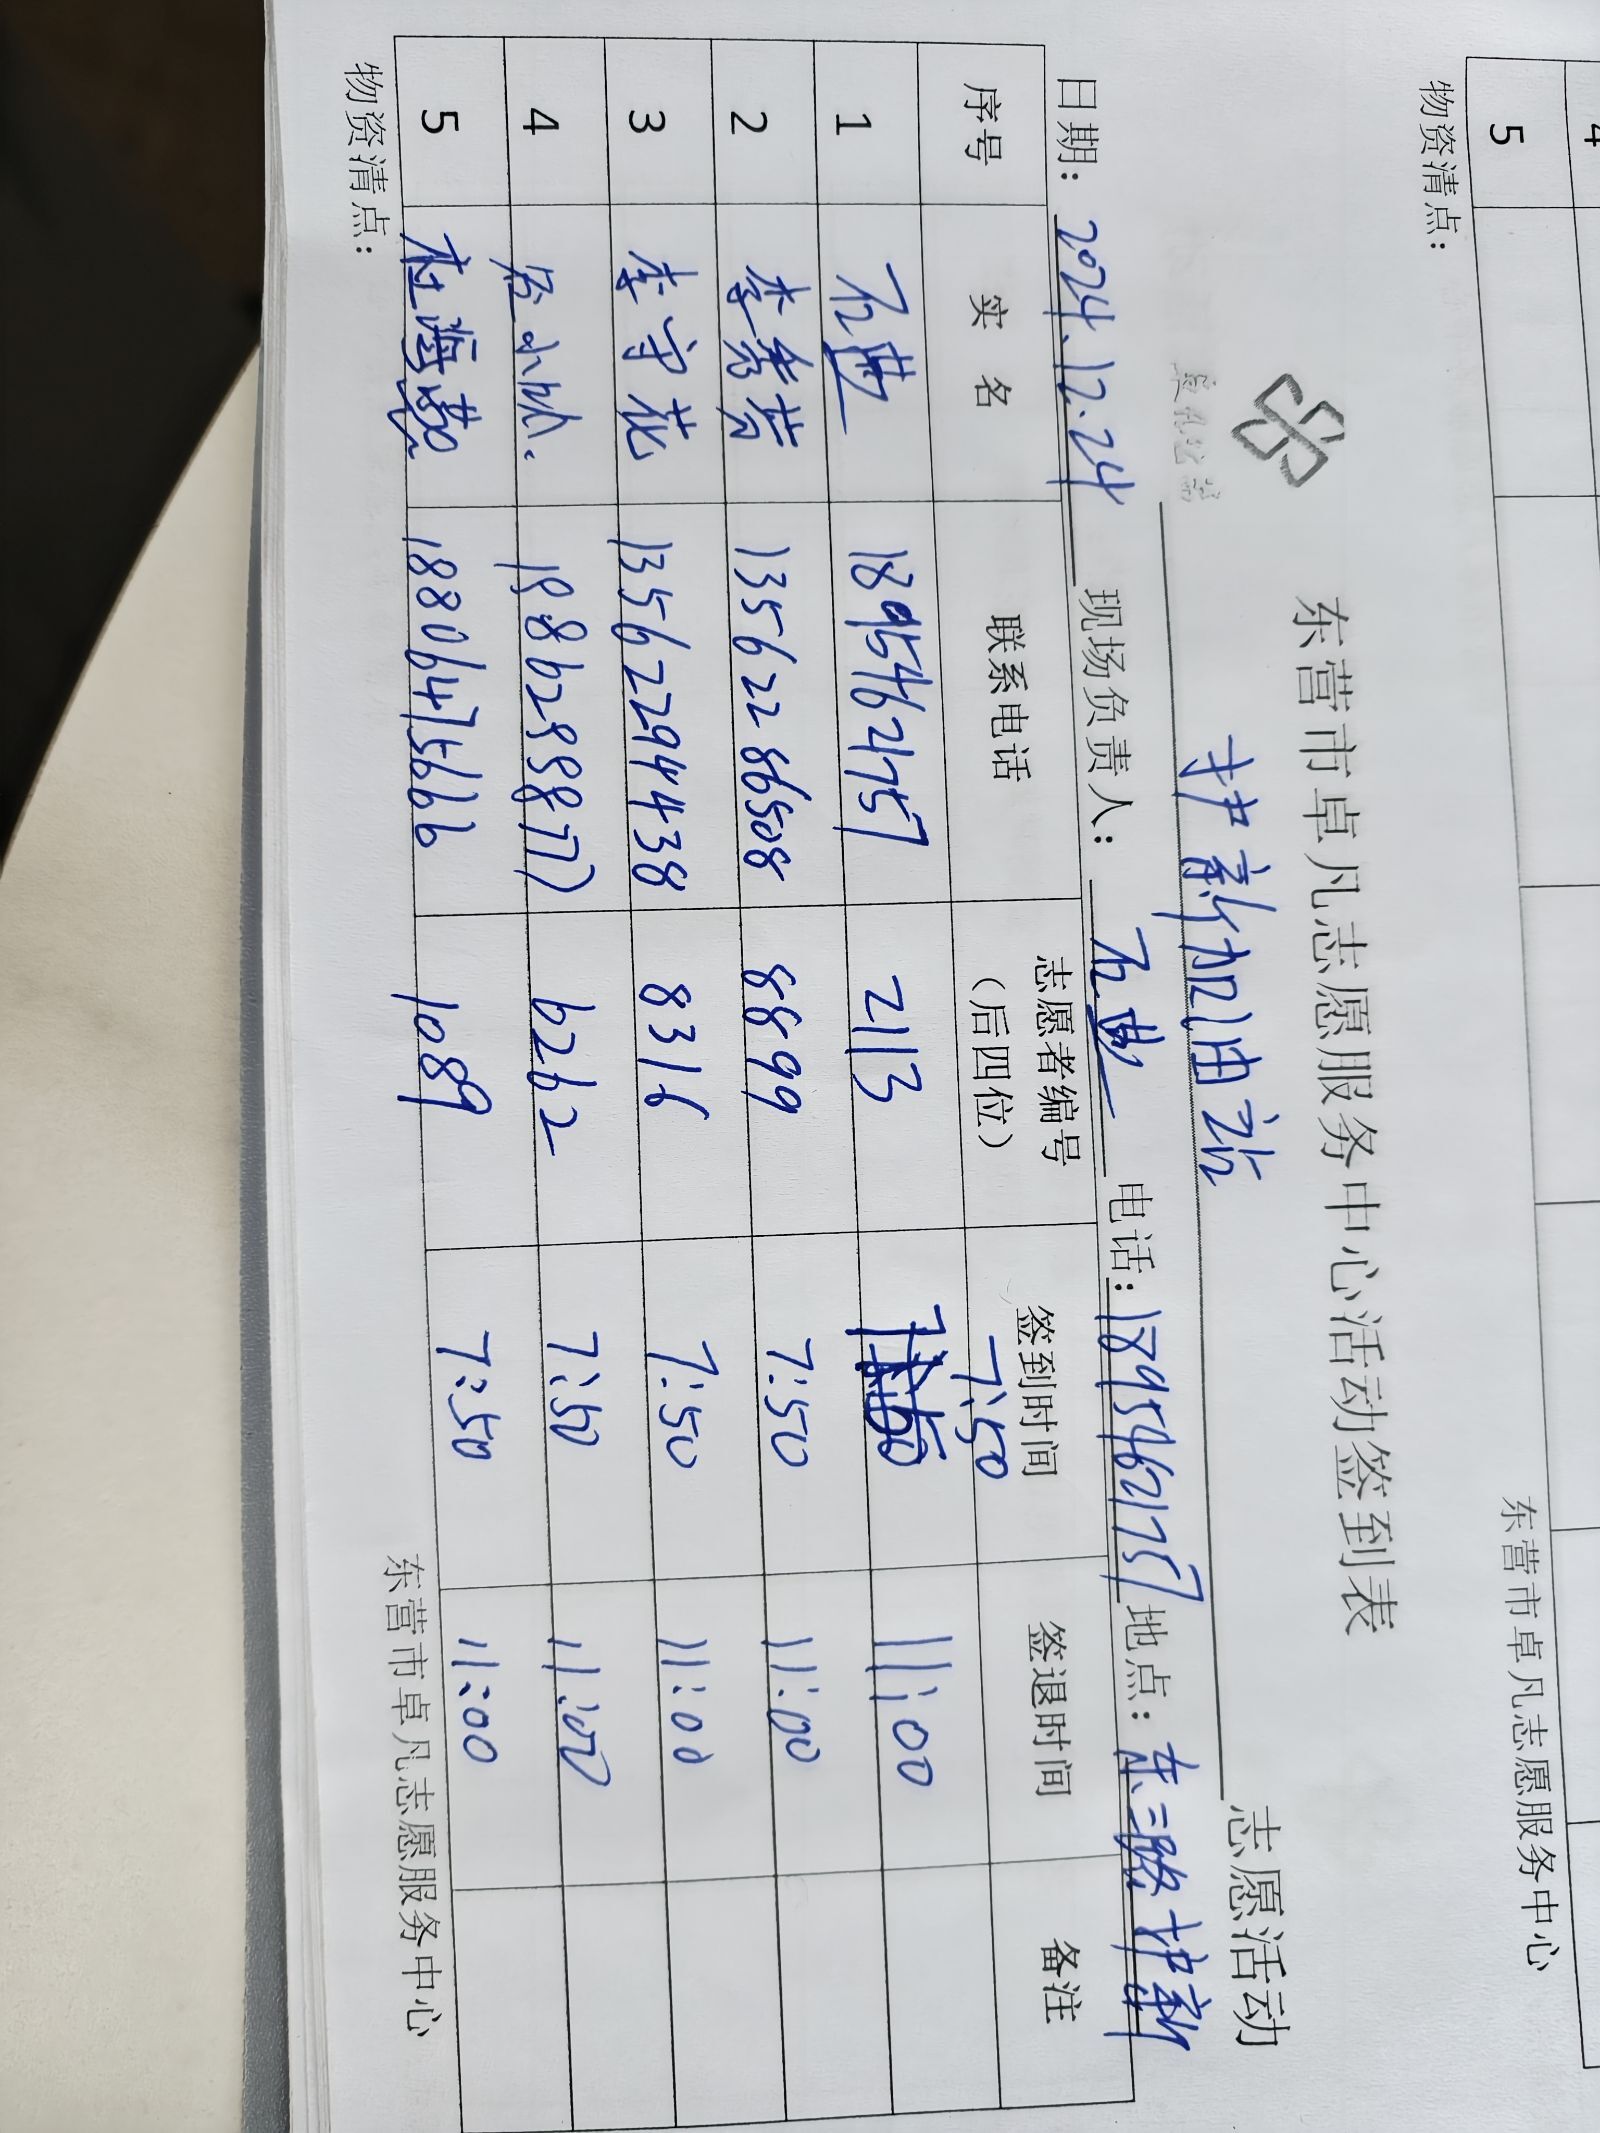 5
物资清点：
东营市卓凡志愿服务中心
东营市卓凡志愿服务中心活动签到表
护新加油站 志愿活动
日期：2024.12.24 现场负责人： 电话：18954621757 地点：东二路护新
序号 实 名 联系电话 志愿者编号（后四位） 签到时间 签退时间 备注
7:50
1 2113 11:00
2 李秀芳 13562286508 8899 7:50 11:00
3 李守花 13562294438 8316 7:50 11:00
4 6262 7:50 11:00
5 杜海燕 18806475666 1089 7:50 11:00
物资清点：
东营市卓凡志愿服务中心